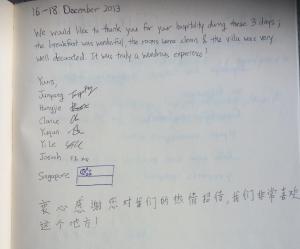 16-18 December 2013
We would like to thank you for your hospitality during these 3 days;
the breakfast was wonderful, the rooms were clean & the villa was very
well decorated. It was truly a wondrous experience!
Yours,
Junyang
Hongjie
Clarice
Yuquan
Yi Le
Josiah
Singapore
衷心感谢您对我们的热情招待,我们非常喜欢
这个地方!